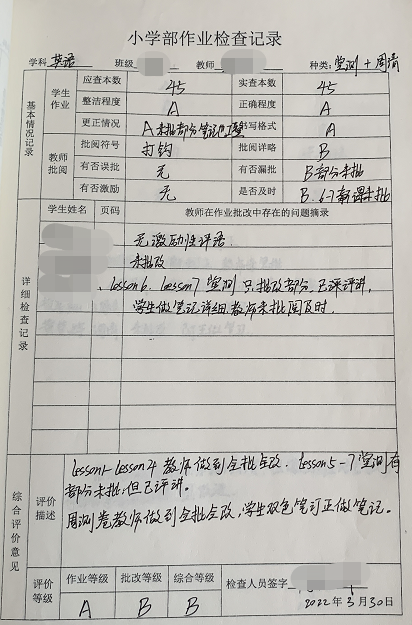 小学部作业检查记录
学科 英语 班级 教师 种类: 堂测 + 周清
基本情况记录
学生作业 应查本数 45 实查本数 45
整洁程度 A 正确程度 A
更正情况 A 未批部分笔记 书写格式 A
教师批阅 批阅符号 打钩 批阅详略 B
有否误批 无 有否漏批 B部分未批
有否激励 无 是否及时 B. 6-7新课未批
详细检查记录
学生姓名 页码 教师在作业批改中存在的问题摘录
无激励性评语.
未批改
、lesson6. lesson7 堂测 只批改部分, 已评讲,
学生做笔记详细.教师未批阅及时.
综合评价意见
评价描述
lesson1-lesson4 教师做到全批全改. lesson5-7堂测有
部分未批,但已评讲。
周测卷教师做到全批全改,学生双色笔订正做笔记.
评价等级 作业等级 批改等级 综合等级 检查人员签字
A B B 2022年3月30日